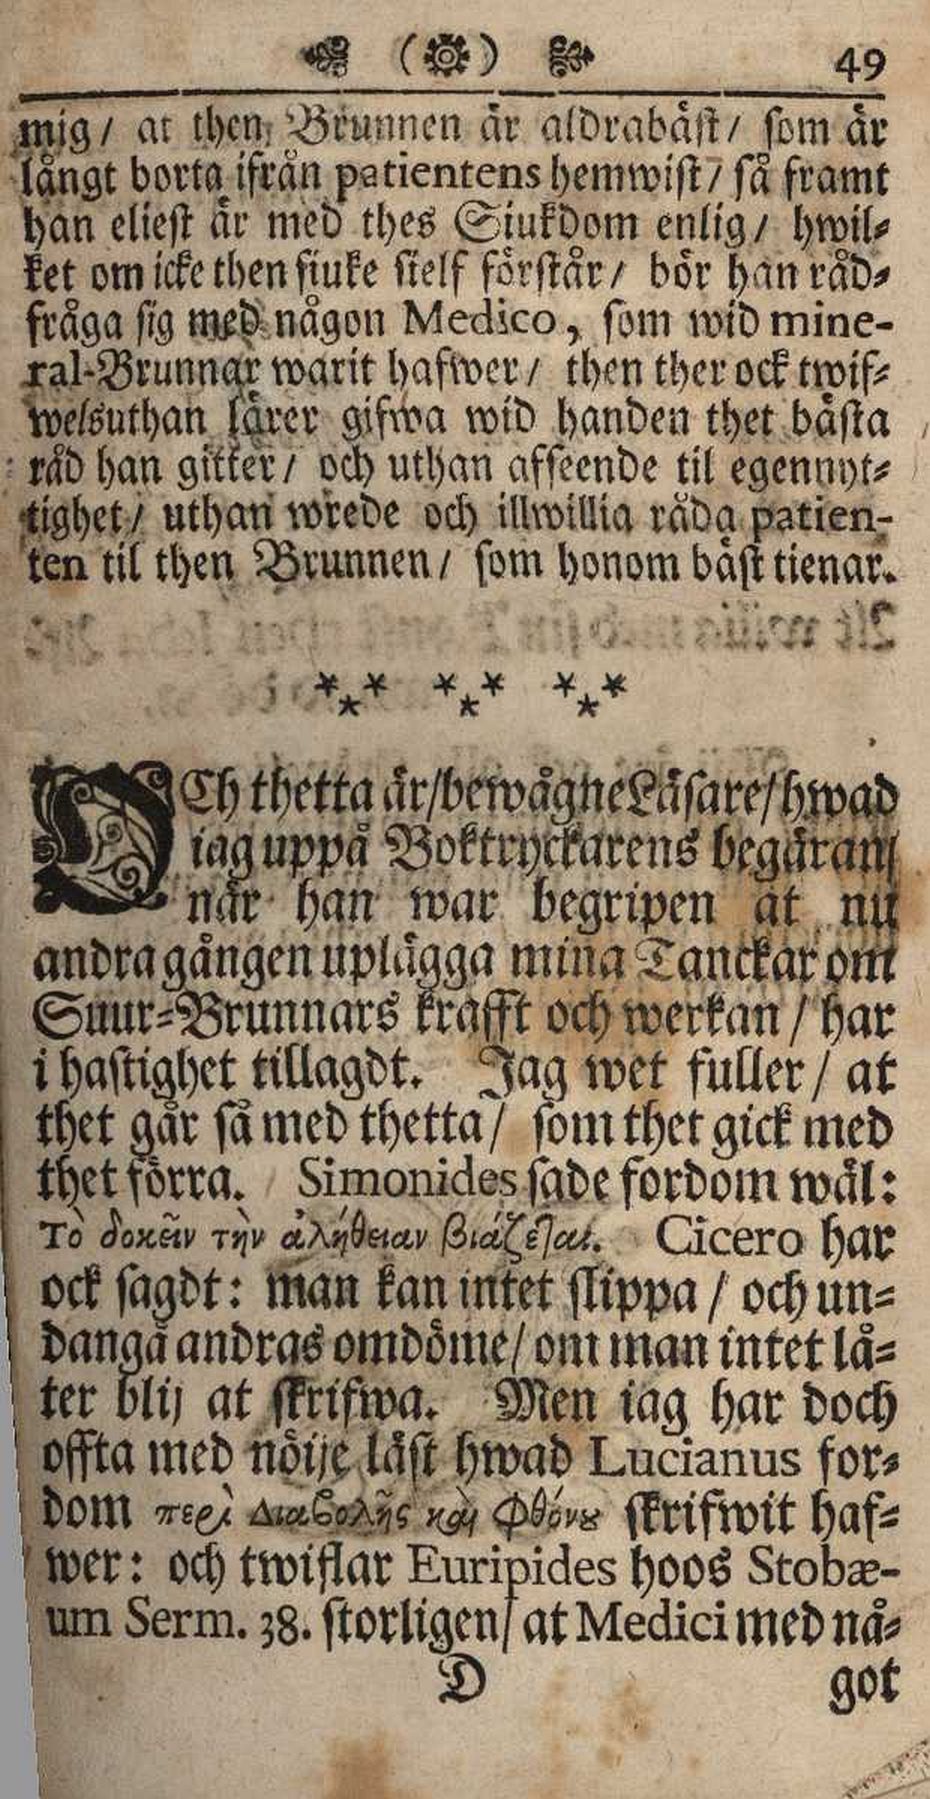 (❁) 49
mig/ at then Brunnen är aldrabäst/ som är
långt borta ifrån patientens hemwist/ så framt
han eliest är med thes Siukdom enlig/ hwil-
ket om icke then siuke sielf förstår/ bör han råd-
fråga sig med någon Medico, som wid mine-
ral-Brunnar warit hafwer/ then ther ock twif-
welsuthan lärer gifwa wid handen thet bästa
råd han gitter/ och uthan afseende til egennyt-
tighet/ uthan wrede och illwillia råda patien-
ten til then Brunnen/ som honom bäst tienar.
*** *** ***
OCh thetta är/bewågne Läsare/hwad
iag uppå Boktryckarens begäran/
när han war begripen at nu
andra gången uplägga mina Tanckar om
Suur-Brunnars krafft och werkan/ har
i hastighet tillagdt. Jag wet fuller/ at
thet går så med thetta/ som thet gick med
thet förra. Simonides sade fordom wäl:
Τὸ δοκεῖν τὴν ἀλήθειαν βιάζεται. Cicero har
ock sagdt: man kan intet slippa/ och un-
dangå andras omdöme/ om man intet lå-
ter blij at skrifwa. Men iag har doch
offta med nöije läst hwad Lucianus for-
dom περὶ Διαβολῆς καὶ Φθόνȣ skrifwit haf-
wer: och twiflar Euripides hoos Stobæ-
um Serm. 38. storligen/ at Medici med nå-
D got